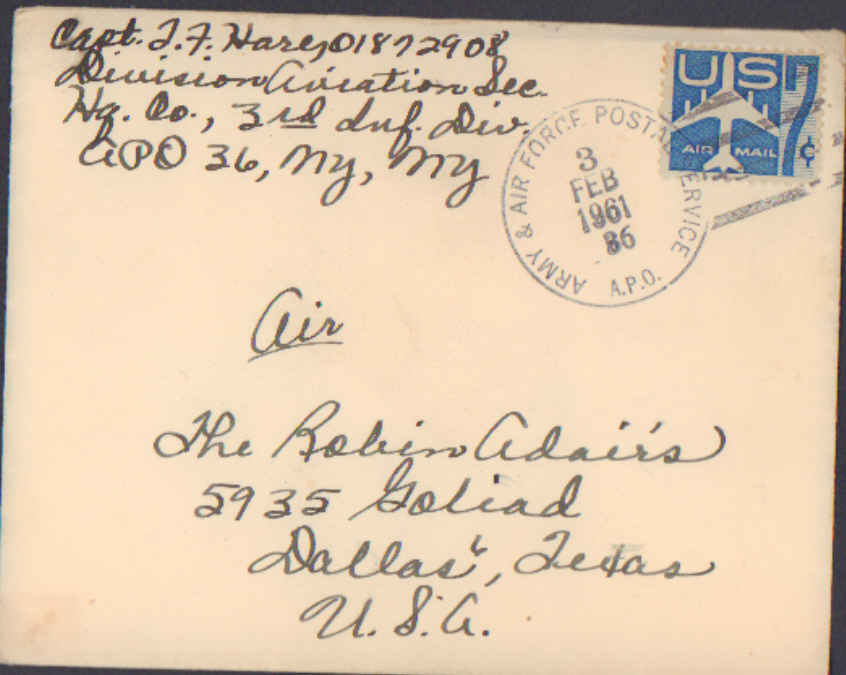 Capt. J. F. Hare, 01872908
Division Aviation Sec.
Hq. Co., 3rd Inf. Div.
APO 36, NY, NY
US 7¢
AIR MAIL
ARMY & AIR FORCE POSTAL SERVICE
3
FEB
1961
A.P.O.
Air
The Robin Adair's
5935 Goliad
Dallas 6, Texas
U. S. A.